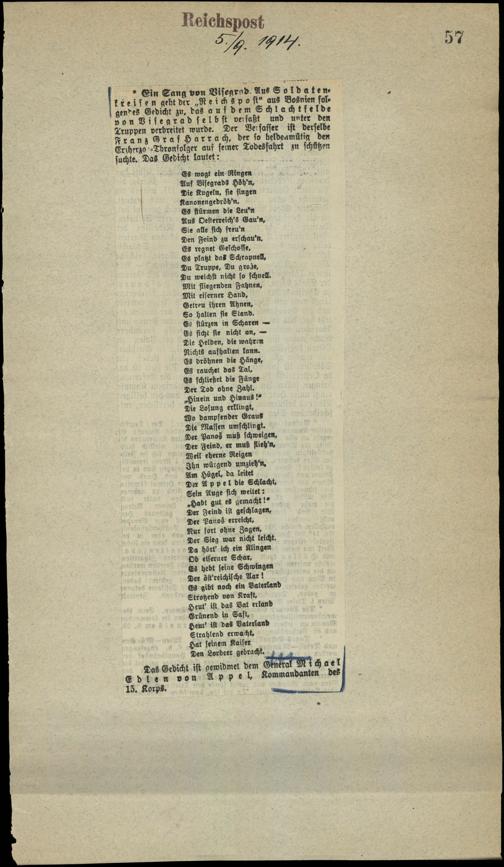 Reichspost
5./9. 1914.
57
* Ein Sang von Visegrad. Aus Soldaten-
kreisen geht der „Reichspost“ aus Bosnien fol-
gendes Gedicht zu, das auf dem Schlachtfelde
von Visegrad selbst verfaßt und unter den
Truppen verbreitet wurde. Der Verfasser ist derselbe
Franz Graf Harrach, der so heldenmütig den
Erzherzog-Thronfolger auf seiner Todesfahrt zu schützen
suchte. Das Gedicht lautet:
Es wogt ein Ringen
Auf Visegrads Höh'n,
Die Kugeln, sie singen
Kanonengedröh'n.
Es stürmen die Leu'n
Aus Oesterreich's Gau'n,
Sie alle sich freu'n
Den Feind zu erschau'n.
Es regnet Geschosse,
Es platzt das Schrapnell,
Du Truppe, Du große,
Du weichst nicht so schnell.
Mit fliegenden Fahnen,
Mit eiserner Hand,
Getreu ihren Ahnen,
So halten sie Stand.
Es stürzen in Scharen —
Es ficht sie nicht an, —
Die Helden, die wahren
Nichts aufhalten kann.
Es dröhnen die Hänge,
Es rauchet das Tal,
Es schließet die Fänge
Der Tod ohne Zahl.
„Hinein und Hinaus!“
Die Losung erklingt,
Wo dampfender Graus
Die Massen umschlingt.
Der Panos muß schweigen,
Der Feind, er muß flieh'n,
Weil eherne Reigen
Ihn würgend umzieh'n.
Am Hügel, da leitet
Der Appel die Schlacht,
Sein Auge sich weitet:
„Habt gut es gemacht!“
Der Feind ist geschlagen,
Der Panos erreicht,
Nur fort ohne Zagen,
Der Sieg war nicht leicht.
Da hört' ich ein Klingen
Ob eiserner Schar,
Es hebt seine Schwingen
Der öst'reichische Aar!
Es gibt noch ein Vaterland
Strotzend von Kraft,
Heut' ist das Vaterland
Grünend in Saft,
Heut' ist das Vaterland
Strahlend erwacht,
Hat seinem Kaiser
Den Lorbeer gebracht.
Das Gedicht ist gewidmet dem General Michael
Edlen von Appel, Kommandanten des
15. Korps.